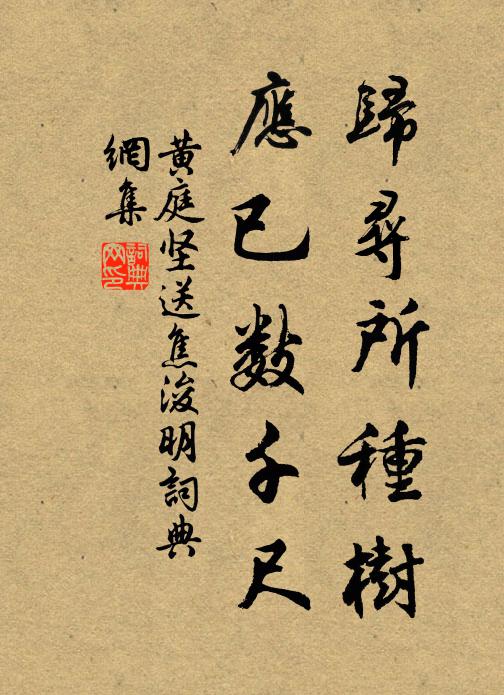 歸尋所種樹
應已數千尺
黃庭坚送焦浚明詞典
網集
詞典
网印